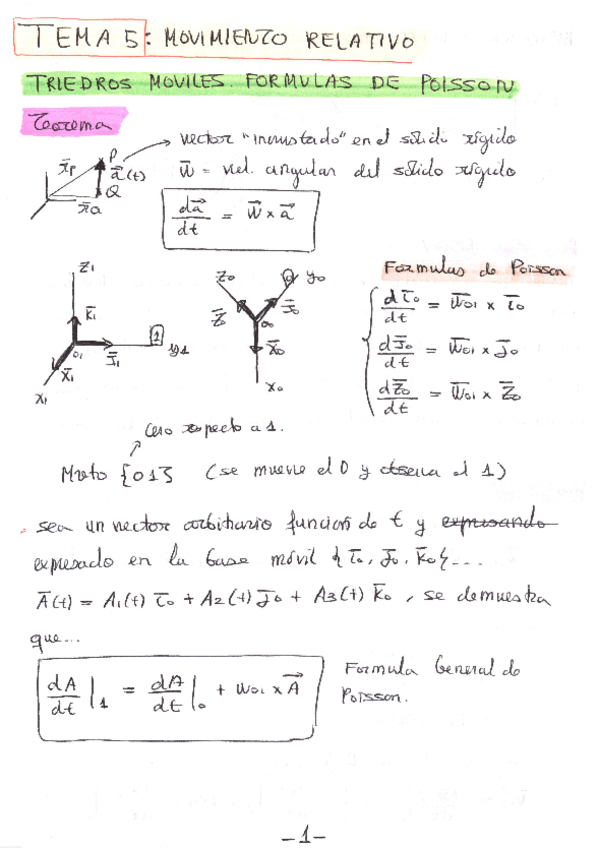 TEMA 5: MOVIMIENTO RELATIVO
TRIEDROS MOVILES. FORMULAS DE POISSON
Teorema
vector "incrustado" en el sólido rígido
x̄p P a⃗(t) Q x̄Q
w̄ = vel. angular del sólido rígido
da⃗/dt = w⃗ x a⃗
Formulas de Poisson
z1 k̄1 o1 j̄1 1 y1 x̄1 x1
z0 z̄0 0 y0 j̄0 o0 x̄0 x0
dī0/dt = w̄01 x ī0
dj̄0/dt = w̄01 x j̄0
dz̄0/dt = w̄01 x z̄0
Cero respecto a 1.
Mvto {01} (se mueve el 0 y observa el 1)
. sea un vector arbitrario función de t y expresando
expresado en la base móvil {ī0, j̄0, k̄0}...
Ā(t) = A1(t) ī0 + A2(t) j̄0 + A3(t) k̄0, se demuestra
que...
dA/dt |1 = dA/dt |0 + w01 x A⃗
Formula General de
Poisson.
-1-